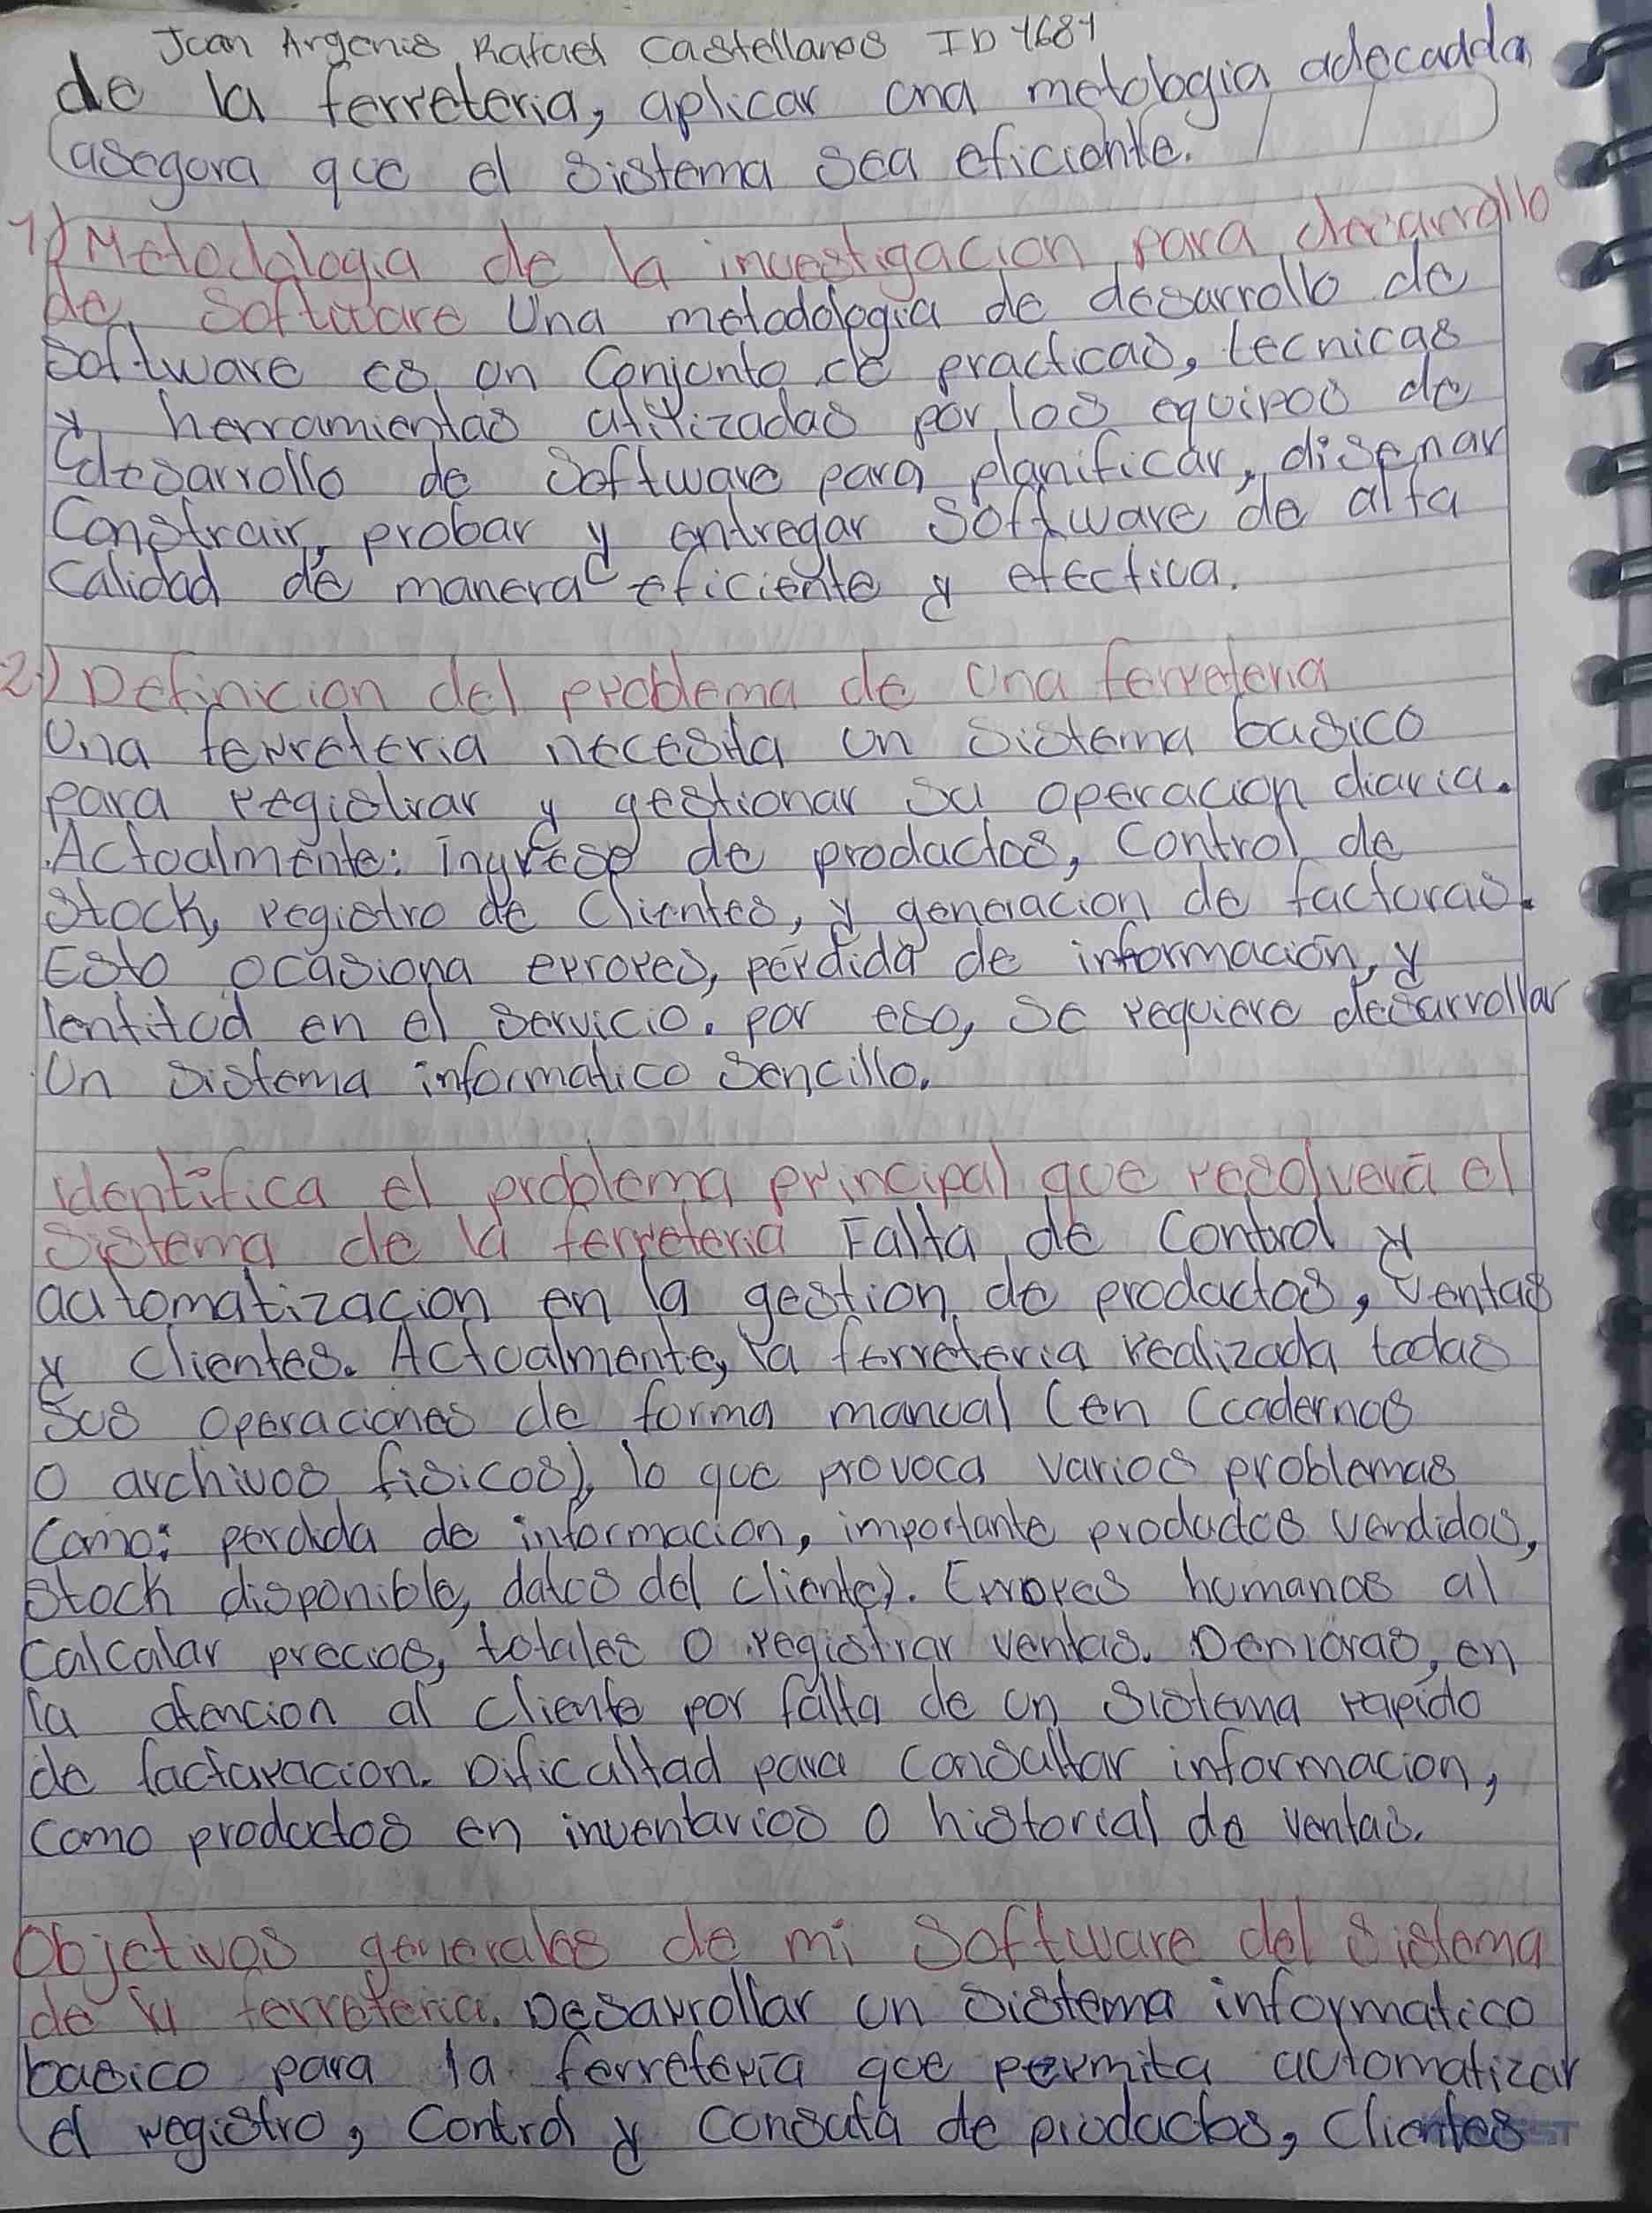 Juan Argenis Rafael Castellanos ID 4684
de la ferreteria, aplicar una metologia adecuadda
asegura que el sistema sea eficiente.
1) Metodologia de la investigacion para desarrollo
de Software Una metodologia de desarrollo de
software es un conjunto de practicas, tecnicas
y herramientas utilizadas por los equipos de
desarrollo de software para planificar, disenar
Construir, probar y entregar Software de alta
Calidad de manera eficiente y efectiva.
2) Definicion del problema de una ferreteria
Una ferreteria necesita un sistema basico
para registrar y gestionar su operacion diaria.
Actualmente: ingreso de productos, Control de
Stock, registro de Clientes, y generacion de facturas.
Esto ocasiona errores, pérdida de información, y
lentitud en el servicio. por eso, se requiere desarrollar
Un sistema informatico sencillo.
identifica el problema principal que resolverá el
Sistema de la ferreteria Falta de Control y
automatizacion en la gestion de productos, Ventas
y clientes. Actualmente, la ferreteria realizada todas
Sus operaciones de forma manual (en Ccadernos
O archivos fisicos), lo que provoca varios problemas
Como: perdida de informacion, importante productos vendidos,
Stock disponible, datos del cliente). Errores humanos al
Calcular precios, totales o registrar ventas. Demoras, en
la atencion al cliente por falta de un sistema rapido
de facturacion. Dificultad para Consultar informacion,
Como productos en inventarios o historial de ventas.
Objetivos generales de mi Software del Sistema
de la ferreteria. Desarrollar un sistema informatico
basico para la ferreteria que permita automatizar
el registro, Control y Consulta de productos, Clientes